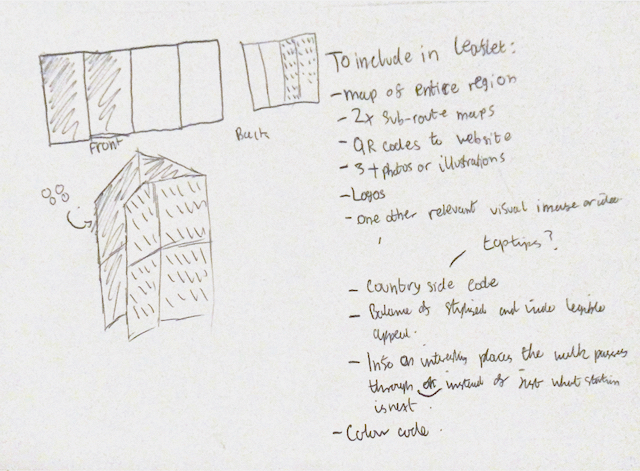 Front
Back
To include in leaflet:
- map of entire region
- 2x sub-route maps
- QR codes to website
- 3+ photos or illustrations
- Logos
- one other relevant visual image or idea
top tips?
- Country side code
- Balance of stylised and wide legible
appeal.
- Info on interesting places the walk passes
through or instead of just what station
is next.
- Colour code.